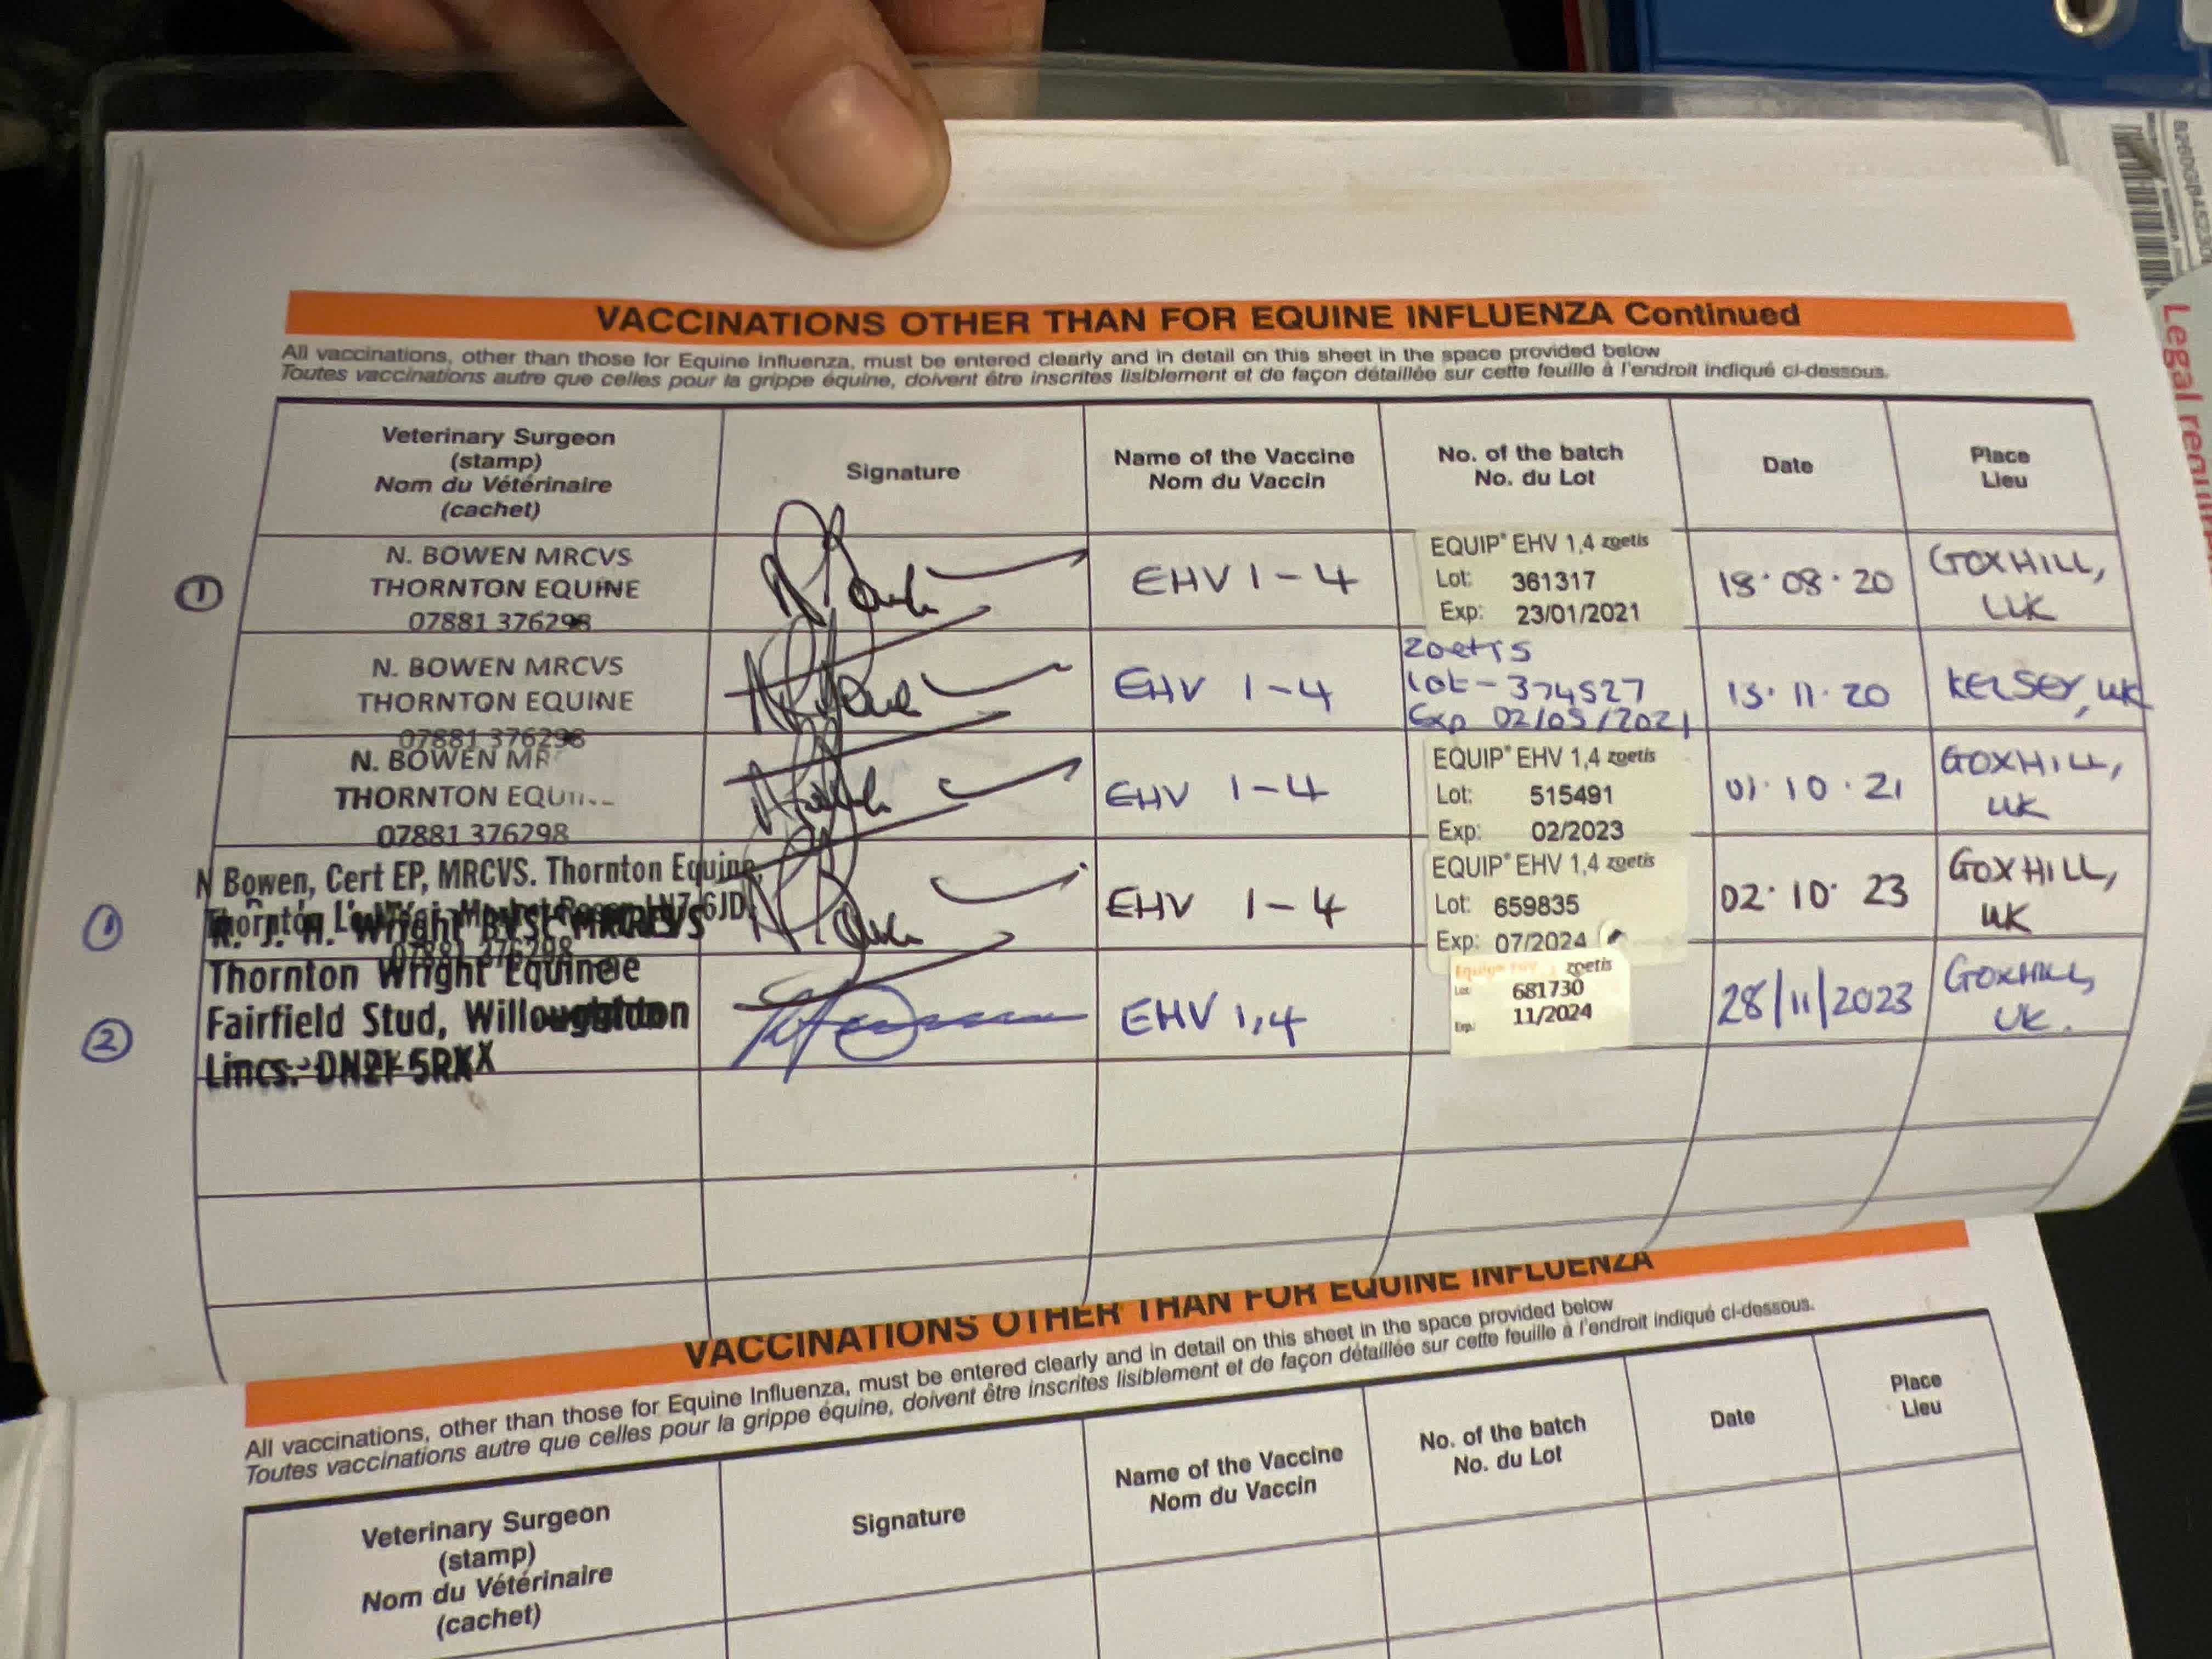 VACCINATIONS OTHER THAN FOR EQUINE INFLUENZA Continued
All vaccinations, other than those for Equine Influenza, must be entered clearly and in detail on this sheet in the space provided below
Toutes vaccinations autre que celles pour la grippe équine, doivent être inscrites lisiblement et de façon détaillée sur cette feuille à l'endroit indiqué ci-dessous.
Veterinary Surgeon
(stamp)
Nom du Vétérinaire
(cachet)
Signature
Name of the Vaccine
Nom du Vaccin
No. of the batch
No. du Lot
Date
Place
Lieu
①
N. BOWEN MRCVS
THORNTON EQUINE
07881 376298
EHV 1-4
EQUIP® EHV 1,4 zoetis
Lot: 361317
Exp: 23/01/2021
18·08·20
GOXHILL,
UK
N. BOWEN MRCVS
THORNTON EQUINE
07881 376298
EHV 1-4
Zoetis
Lot - 374527
Exp 02/05/2021
13·11·20
KELSEY, UK
N. BOWEN
THORNTON
07881 376298
EHV 1-4
EQUIP® EHV 1,4 zoetis
Lot: 515491
Exp: 02/2023
01·10·21
GOXHILL,
UK
①
N Bowen, Cert EP, MRCVS. Thornton Equine,
Thornton
07881 376298
EHV 1-4
EQUIP® EHV 1,4 zoetis
Lot: 659835
Exp: 07/2024
02·10·23
GOXHILL,
UK
②
Wright
Thornton Wright Equine
Fairfield Stud, Willoughton
Lincs.
EHV 1,4
zoetis
Lot: 681730
Exp: 11/2024
28/11/2023
GOXHILL,
UK.
VACCINATIONS OTHER THAN FOR EQUINE INFLUENZA
All vaccinations, other than those for Equine Influenza, must be entered clearly and in detail on this sheet in the space provided below
Toutes vaccinations autre que celles pour la grippe équine, doivent être inscrites lisiblement et de façon détaillée sur cette feuille à l'endroit indiqué ci-dessous.
Veterinary Surgeon
(stamp)
Nom du Vétérinaire
(cachet)
Signature
Name of the Vaccine
Nom du Vaccin
No. of the batch
No. du Lot
Date
Place
Lieu
Legal